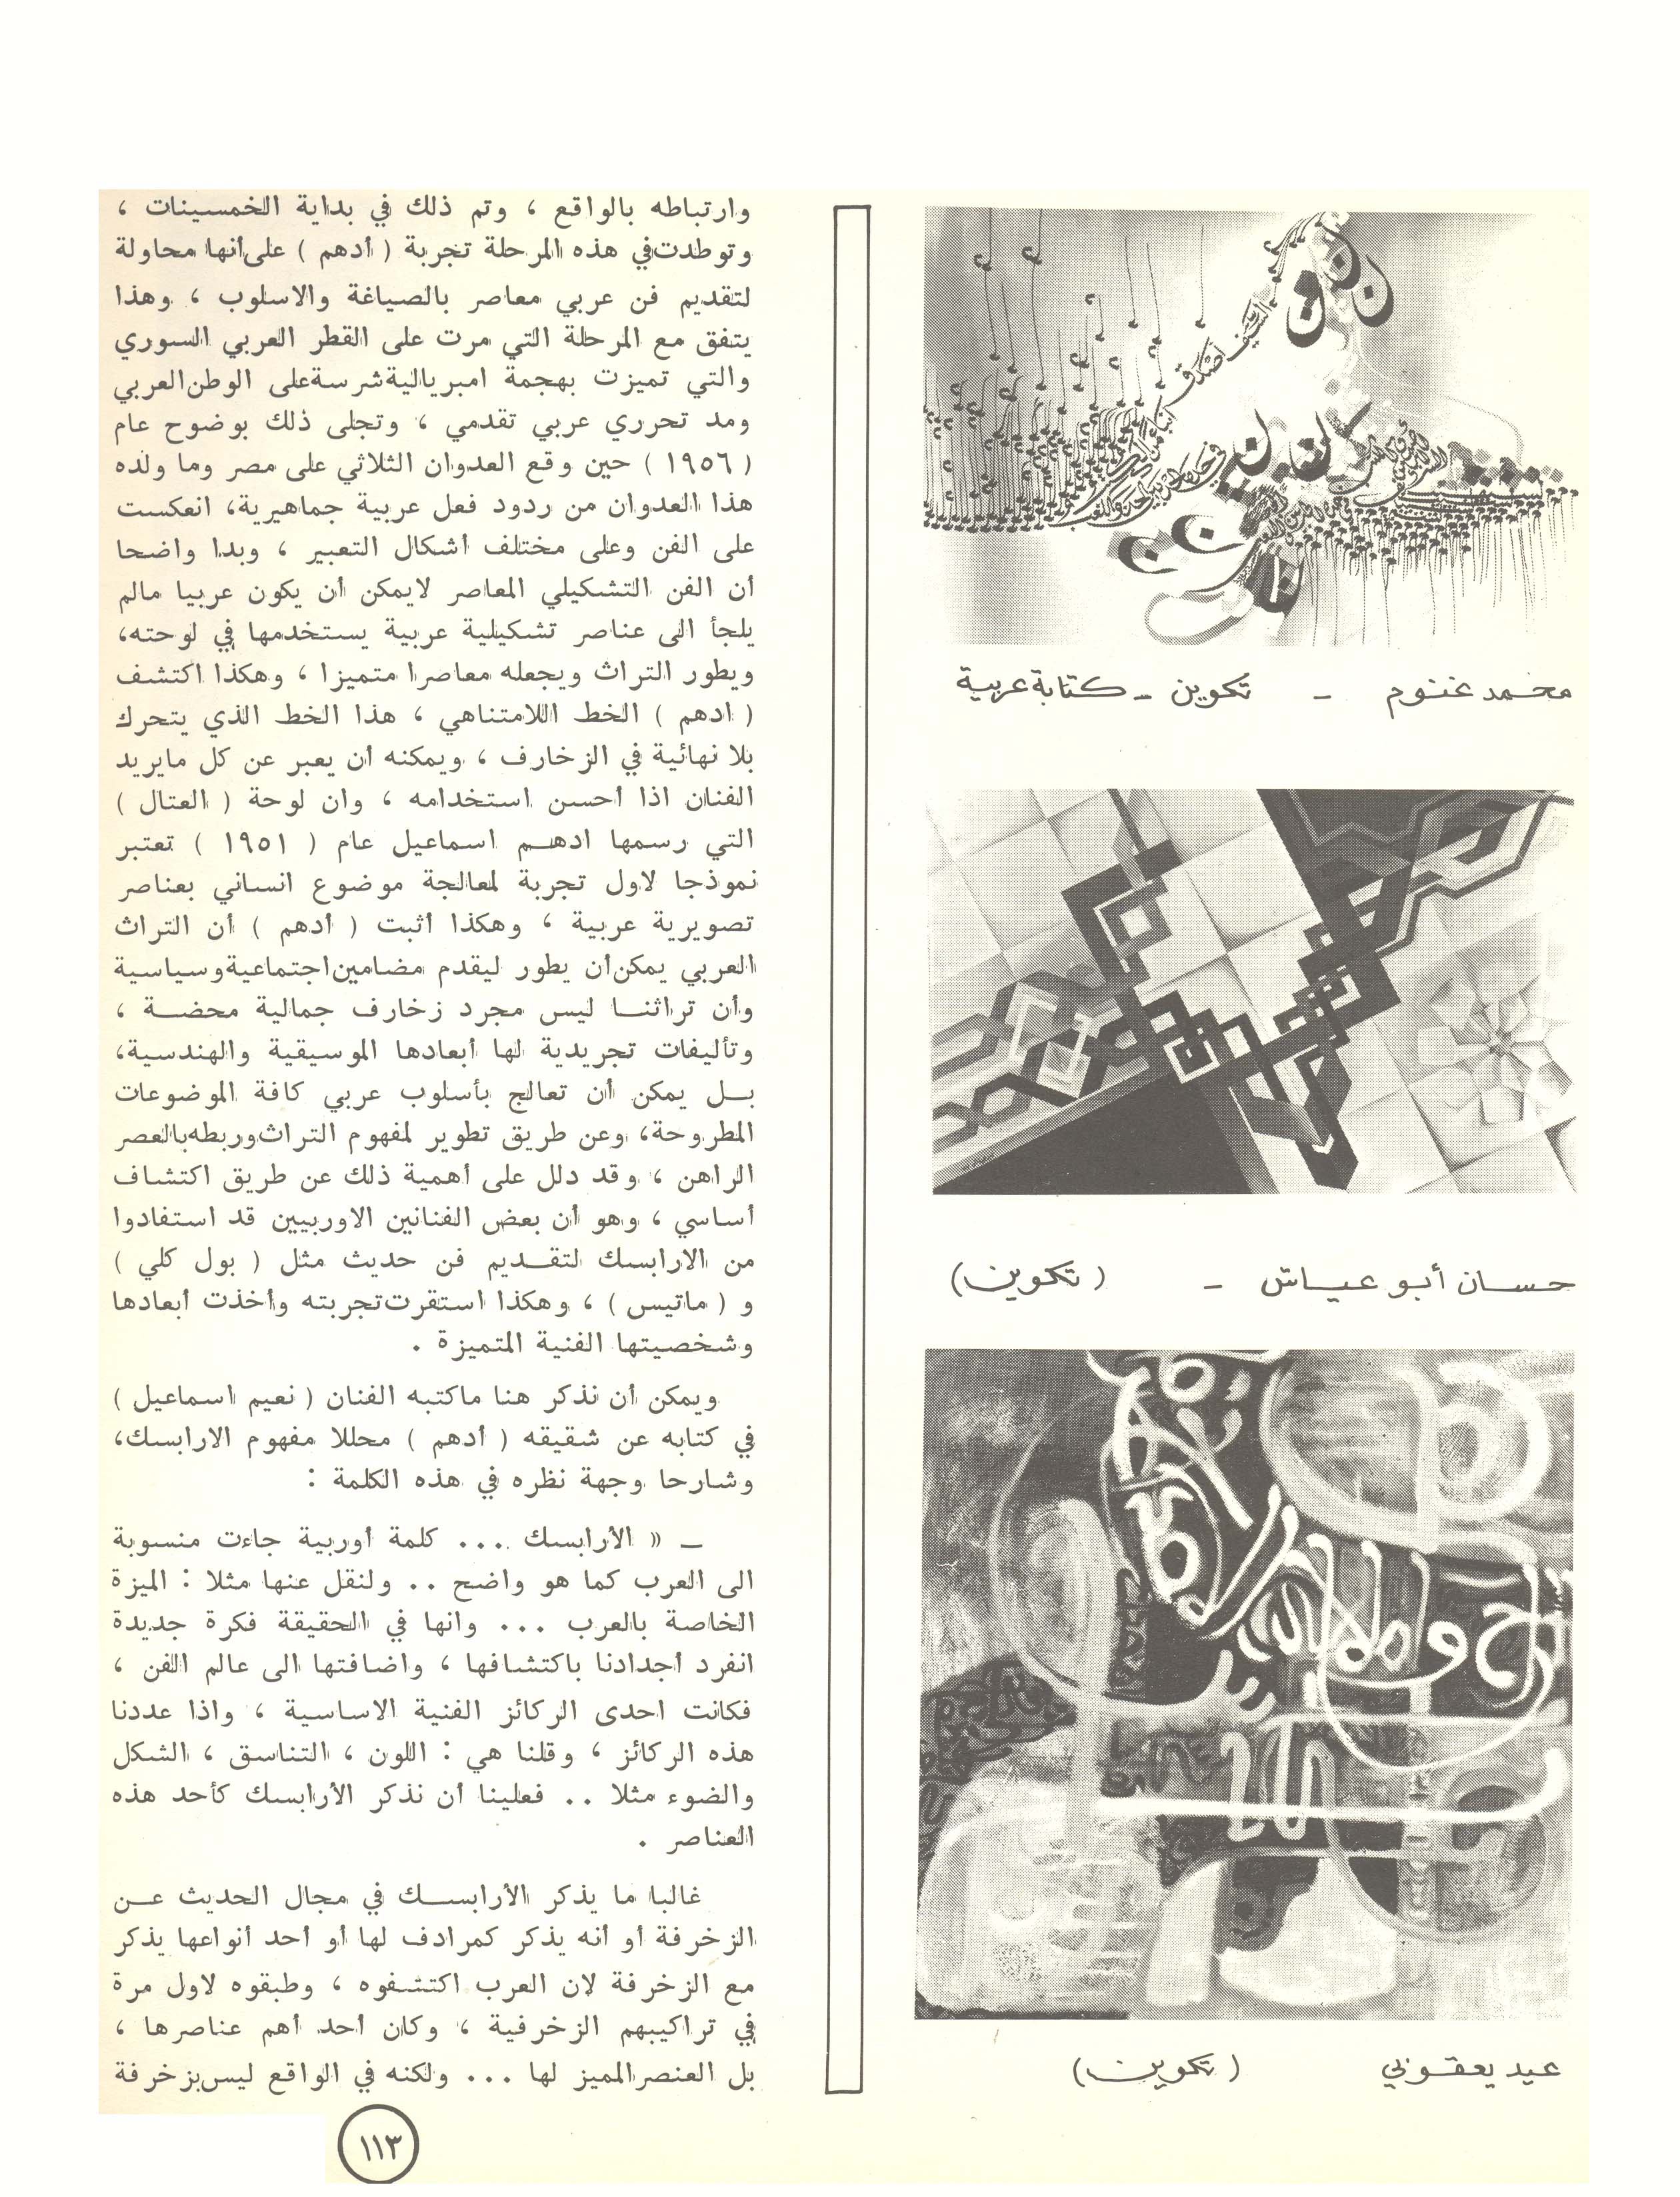 محمد غنوم - تكوين - كتابة عربية
حسان أبو عياش - ( تكوين )
عيد يعقوبي ( تكوين )
وارتباطه بالواقع ، وتم ذلك في بداية الخمسينات ،
وتوطدت في هذه المرحلة تجربة ( أدهم ) على أنها محاولة
لتقديم فن عربي معاصر بالصياغة والاسلوب ، وهذا
يتفق مع المرحلة التي مرت على القطر العربي السوري
والتي تميزت بهجمة امبريالية شرسة على الوطن العربي
ومد تحرري عربي تقدمي ، وتجلى ذلك بوضوح عام
( ١٩٥٦ ) حين وقع العدوان الثلاثي على مصر وما ولده
هذا العدوان من ردود فعل عربية جماهيرية، انعكست
على الفن وعلى مختلف أشكال التعبير ، وبدا واضحا
أن الفن التشكيلي المعاصر لايمكن أن يكون عربيا مالم
يلجأ الى عناصر تشكيلية عربية يستخدمها في لوحته،
ويطور التراث ويجعله معاصرا متميزا ، وهكذا اكتشف
( ادهم ) الخط اللامتناهي ، هذا الخط الذي يتحرك
بلا نهائية في الزخارف ، ويمكنه أن يعبر عن كل مايريد
الفنان اذا أحسن استخدامه ، وان لوحة ( العتال )
التي رسمها ادهم اسماعيل عام ( ١٩٥١ ) تعتبر
نموذجا لاول تجربة لمعالجة موضوع انساني بعناصر
تصويرية عربية ، وهكذا أثبت ( أدهم ) أن التراث
العربي يمكن أن يطور ليقدم مضامين اجتماعية وسياسية
وأن تراثنا ليس مجرد زخارف جمالية محضة ،
وتأليفات تجريدية لها أبعادها الموسيقية والهندسية،
بل يمكن أن تعالج بأسلوب عربي كافة الموضوعات
المطروحة، وعن طريق تطوير لمفهوم التراث وربطه بالعصر
الراهن ، وقد دلل على أهمية ذلك عن طريق اكتشاف
أساسي ، وهو أن بعض الفنانين الاوربيين قد استفادوا
من الارابسك لتقديم فن حديث مثل ( بول كلي )
و ( ماتيس ) ، وهكذا استقرت تجربته وأخذت أبعادها
وشخصيتها الفنية المتميزة .
ويمكن أن نذكر هنا ماكتبه الفنان ( نعيم اسماعيل )
في كتابه عن شقيقه ( أدهم ) محللا مفهوم الارابسك،
وشارحا وجهة نظره في هذه الكلمة :
ـ « الأرابسك ... كلمة أوربية جاءت منسوبة
الى العرب كما هو واضح .. ولنقل عنها مثلا : الميزة
الخاصة بالعرب ... وانها في الحقيقة فكرة جديدة
انفرد أجدادنا باكتشافها ، واضافتها الى عالم الفن ،
فكانت احدى الركائز الفنية الاساسية ، واذا عددنا
هذه الركائز ، وقلنا هي : اللون ، التناسق ، الشكل
والضوء مثلا .. فعلينا أن نذكر الأرابسك كأحد هذه
العناصر .
غالبا ما يذكر الأرابسك في مجال الحديث عن
الزخرفة أو أنه يذكر كمرادف لها أو أحد أنواعها يذكر
مع الزخرفة لان العرب اكتشفوه ، وطبقوه لاول مرة
في تراكيبهم الزخرفية ، وكان أحد أهم عناصرها ،
بل العنصر المميز لها ... ولكنه في الواقع ليس بزخرفة
١١٣